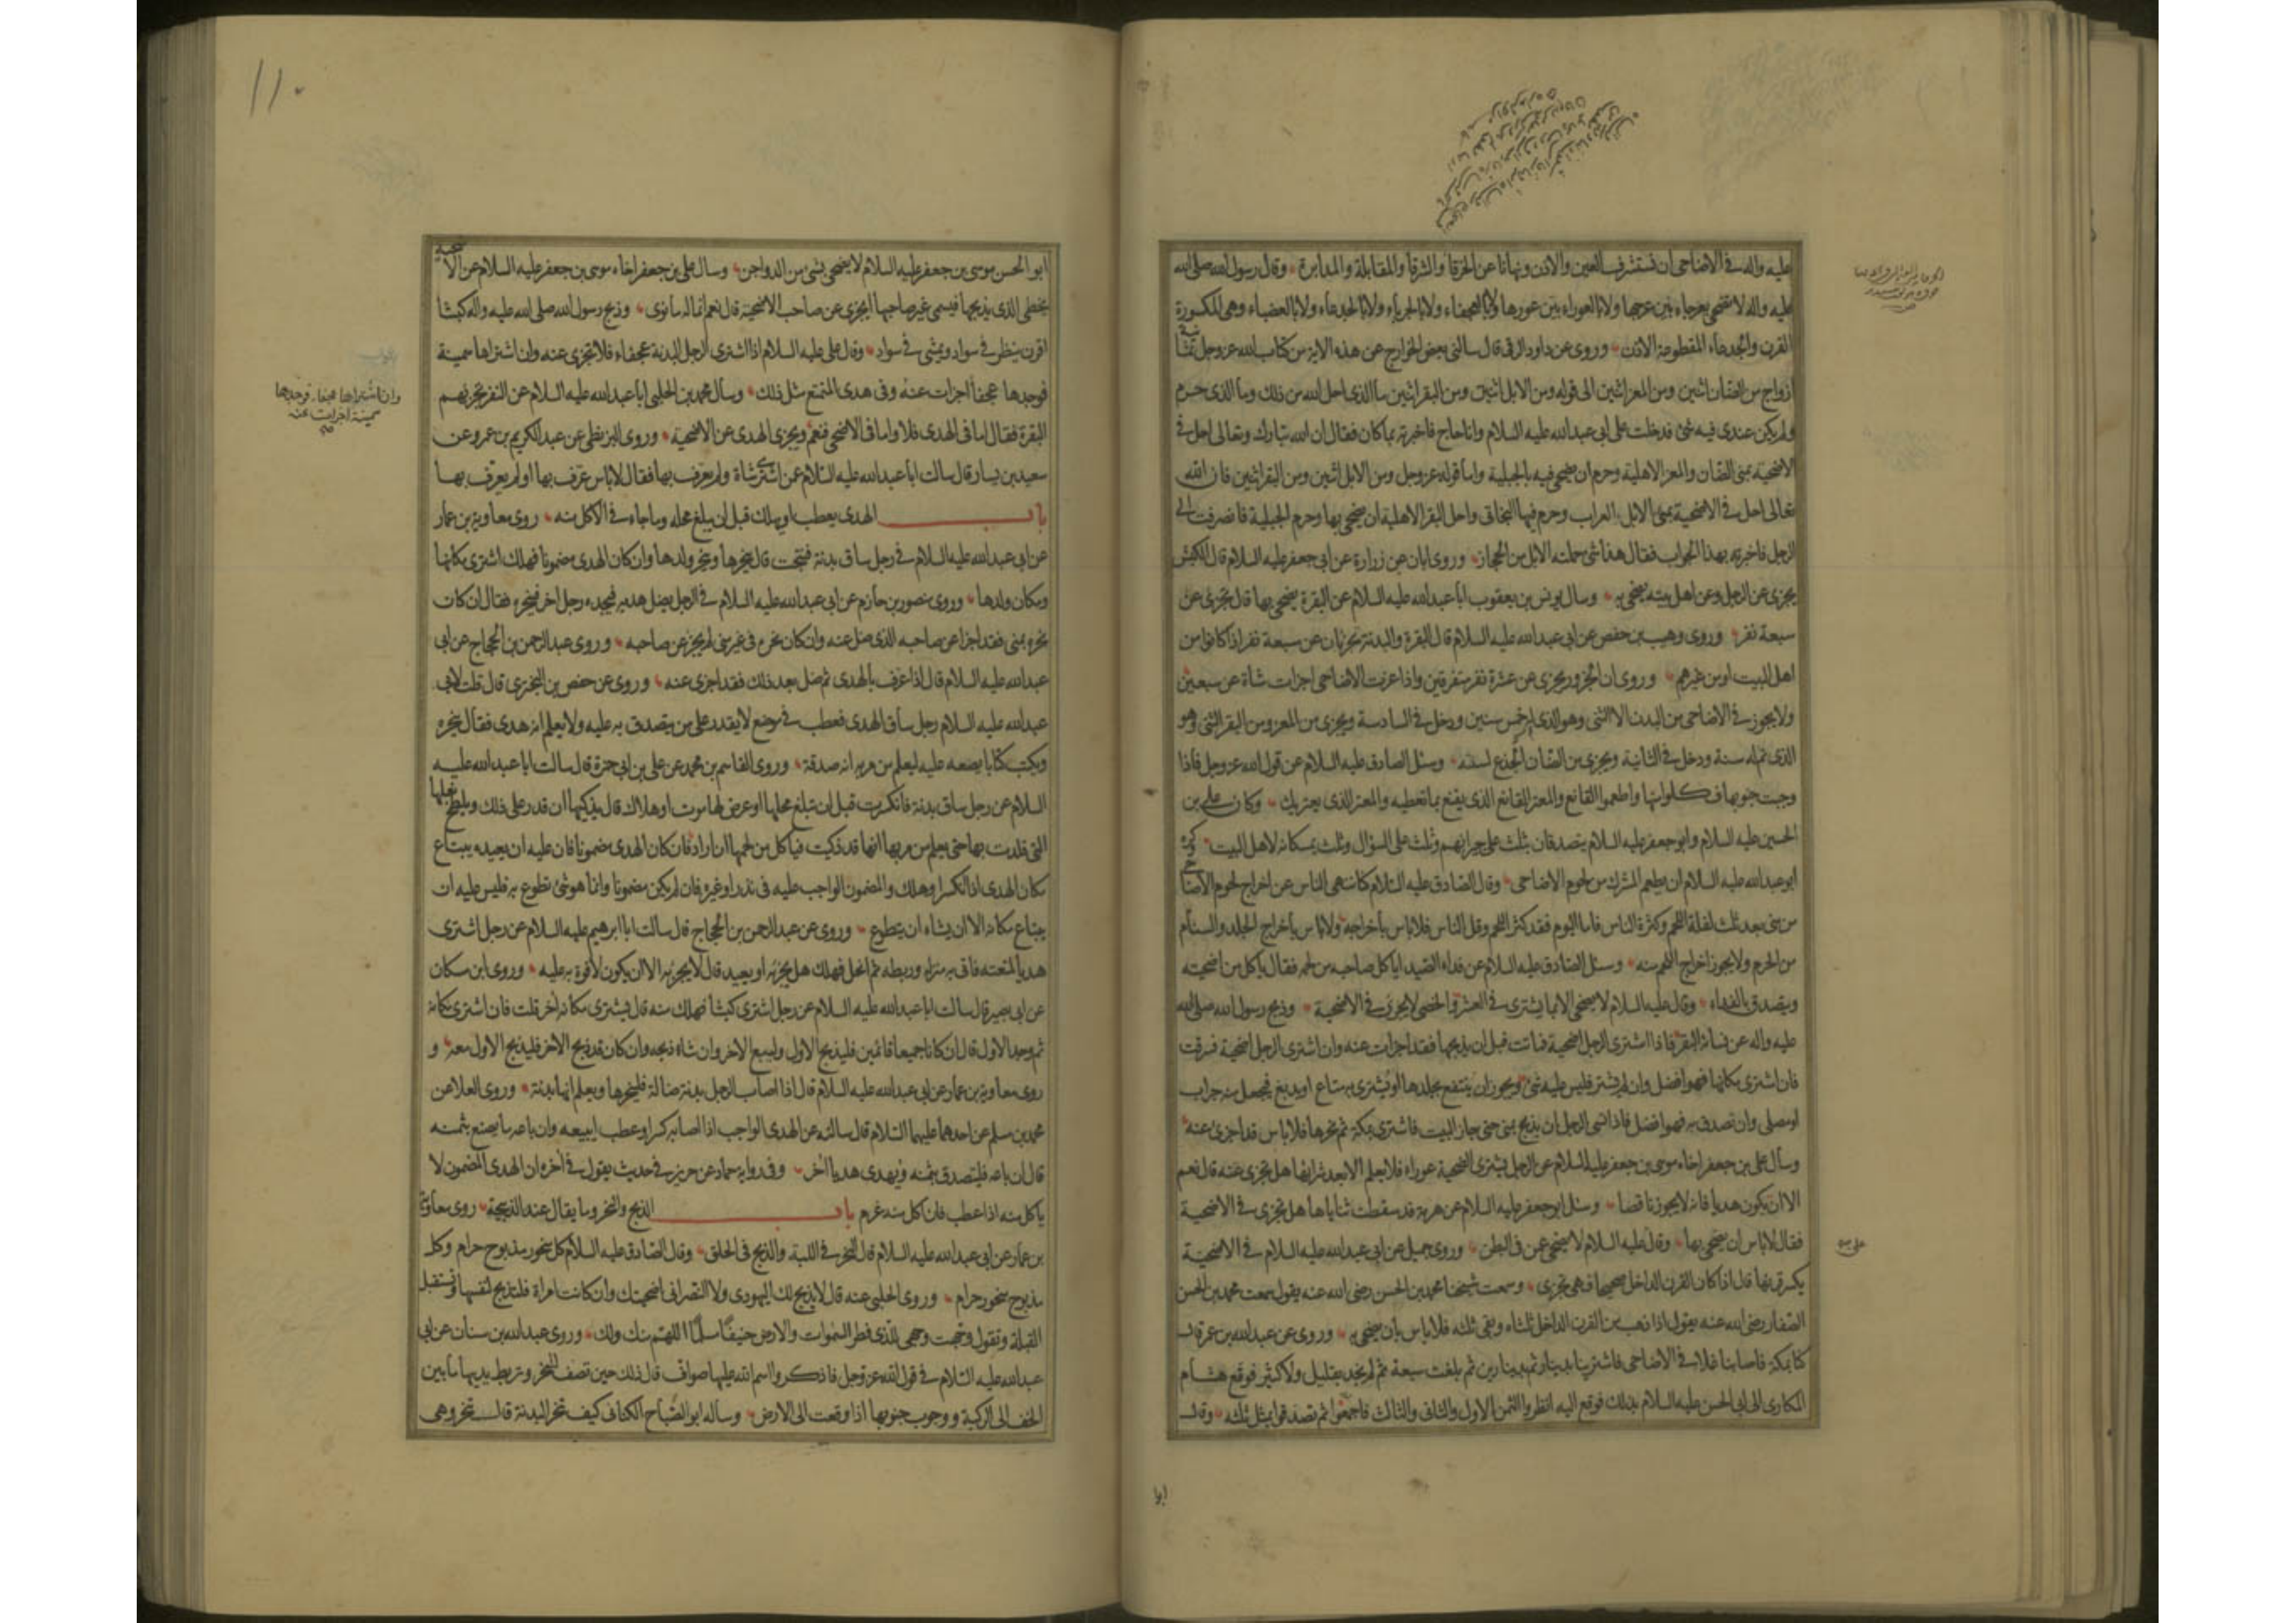 عليه واله في الاضاحى ان نستشرف العين والاذن ونهانا عن الخرقا والشرقا والمقابلة والمدابرة وقال رسول الله صلى الله
عليه واله لا تضحى بعرجاء بين عرجها ولا بالعوراء بين عورها ولا بالعجفاء ولا بالجرباء ولا بالجدعاء ولا بالعضباء وهى المكسورة
القرن والجدعاء المقطوعة الاذن وروى عن داود الرقى قال سالنى بعض الخوارج عن هذه الاية من كتاب الله عزوجل ثمانية
ازواج من الضان اثنين ومن المعز اثنين الى قوله ومن الابل اثنين ومن البقر اثنين ما الذى احل الله من ذلك وما الذى حرم
ولم يكن عندى فيه شئ فدخلت على ابى عبدالله عليه السلام وانا حاج فاخبرته بما كان فقال ان الله تبارك وتعالى احل في
الاضحية بمنى الضان والمعز الاهلية وحرم ان يضحى فيه بالجبلية واما قوله عزوجل ومن الابل اثنين ومن البقر اثنين فان الله
تعالى احل في الاضحية بمنى الابل العراب وحرم فيها البخاتى واحل البقر الاهلية ان يضحى بها وحرم الجبلية فانصرفت الى
الرجل فاخبرته بهذا الجواب فقال هذا شئ حملته الابل من الحجاز وروى ابان عن زرارة عن ابى جعفر عليه السلام قال الكبش
يجزى عن الرجل وعن اهل بيته يضحى به وسال يونس بن يعقوب ابا عبدالله عليه السلام عن البقرة يضحى بها قال تجزى عن
سبعة نفر وروى وهيب بن حفص عن ابى عبدالله عليه السلام قال البقرة والبدنة تجزيان عن سبعة نفر اذا كانوا من
اهل البيت او من غيرهم وروى ان الجزور يجزى عن عشرة نفر متفرقين واذا عزت الاضاحى اجزات شاة عن سبعين
ولا يجوز في الاضاحى من البدن الا الثنى وهو الذى له خمس سنين ودخل في السادسة ويجزى من المعز ومن البقر الثنى وهو
الذى تم له سنة ودخل في الثانية ويجزى من الضان الجذع لسنة وسئل الصادق عليه السلام عن قول الله عزوجل فاذا
وجبت جنوبها فكلوا منها واطعموا القانع والمعتر القانع الذى يقنع بما تعطيه والمعتر الذى يعتريك وكان على بن
الحسين عليه السلام وابو جعفر عليه السلام يتصدقان بثلث على جيرانهم وثلث على السؤال وثلث يمسكانه لاهل البيت وكره
ابو عبدالله عليه السلام ان يطعم المشرك من لحوم الاضاحى وقال الصادق عليه السلام كنا ننهى الناس عن اخراج لحوم الاضاحى
من منى بعد ثلث لقلة اللحم وكثرة الناس فاما اليوم فقد كثر اللحم وقل الناس فلا باس باخراجه ولا باس باخراج الجلد والسنام
من الحرم ولا يجوز اخراج اللحم منه وسئل الصادق عليه السلام عن فداء الصيد اياكل صاحبه من لحمه فقال ياكل من اضحيته
ويتصدق بالفداء وقال عليه السلام لا يضحى الا بما يشترى في العشر والخصى لا يجزى في الاضحية وذبح رسول الله صلى الله
عليه واله عن نسائه البقر فاذا اشترى الرجل اضحية فماتت قبل ان يذبحها فقد اجزات عنه وان اشترى الرجل اضحية فسرقت
فان اشترى مكانها فهو افضل وان لم يشتر فليس عليه شئ ويجوز ان ينتفع بجلدها او يشترى به متاع او يدبغ فيجعل منه جراب
او مصلى وان تصدق به فهو افضل فاذا نسى الرجل ان يذبح بمنى حتى جاز البيت فاشترى بمكة ثم نحرها فلا باس قد اجزى عنه
وسال على بن جعفر اخاه موسى بن جعفر عليه السلام عن الرجل يشترى الضحية عوراء فلا يعلم الا بعد شرائها هل يجزى عنه قال نعم
الا ان يكون هديا فانه لا يجوز ناقصا وسئل ابو جعفر عليه السلام عن هرمة قد سقطت ثناياها هل تجزى في الاضحية
فقال لا باس ان يضحى بها وقال عليه السلام لا يضحى عن في البطن وروى جميل عن ابى عبدالله عليه السلام في الاضحية
يكسر قرنها قال اذا كان القرن الداخل صحيحا فهى تجزى وسمعت شيخنا محمد بن الحسن رضى الله عنه يقول سمعت محمد بن الحسن
الصفار رضى الله عنه يقول اذا ذهب من القرن الداخل ثلثاه وبقى ثلثه فلا باس بان يضحى به وروى عن عبدالله بن عمر قال
كنا بمكة فاصابنا غلاء في الاضاحى فاشترينا بدينار ثم بدينارين ثم بلغت سبعة ثم لم نجد بقليل ولا كثير فوقع هشام
المكارى الى ابى الحسن عليه السلام بذلك فوقع اليه انظروا الثمن الاول والثانى والثالث فاجمعوا ثم تصدقوا بمثل ثلثه وقال
ابو
١١٠
ابو الحسن موسى بن جعفر عليه السلام لا يضحى بشئ من الدواجن وسال على بن جعفر اخاه موسى بن جعفر عليه السلام عن الاضحية
يخطى الذى يذبحها فيسمى غير صاحبها ايجزى عن صاحب الاضحية قال نعم انما له ما نوى وذبح رسول الله صلى الله عليه واله كبشا
اقرن ينظر في سواد ويمشى في سواد وقال على عليه السلام اذا اشترى الرجل البدنة عجفاء فلا تجزى عنه وان اشتراها سمينة
فوجدها عجفا اجزات عنه وفى هدى المتمتع مثل ذلك وسال محمد بن الحلبى ابا عبدالله عليه السلام عن النفر تجزيهم
وان اشتراها عجفا فوجدها
سمينة اجزات عنه
البقرة فقال اما فى الهدى فلا واما فى الاضحى فنعم ويجزى الهدى عن الاضحية وروى البزنطى عن عبد الكريم بن عمرو عن
سعيد بن يسار قال سالت ابا عبدالله عليه السلام عمن اشترى شاة ولم يعرف بها فقال لا باس عرف بها او لم يعرف بها
باب الهدى يعطب او يهلك قبل ان يبلغ محله وما جاء في الاكل منه روى معاوية بن عمار
عن ابى عبدالله عليه السلام في رجل ساق بدنة فنتجت قال ينحرها وينحر ولدها وان كان الهدى مضمونا فهلك اشترى مكانها
ومكان ولدها وروى منصور بن حازم عن ابى عبدالله عليه السلام في الرجل يضل هديه فيجده رجل اخر فينحره فقال ان كان
نحره بمنى فقد اجزا عن صاحبه الذى ضل عنه وان كان نحره فى غير منى لم يجز عن صاحبه وروى عبد الرحمن بن الحجاج عن ابى
عبدالله عليه السلام قال اذا عرف بالهدى ثم ضل بعد ذلك فقد اجزى عنه وروى عن حفص بن البخترى قال قلت لابى
عبدالله عليه السلام رجل ساق الهدى فعطب في موضع لا يقدر على من يتصدق به عليه ولا يعلم انه هدى فقال ينحره
ويكتب كتابا يضعه عليه ليعلم من مر به انه صدقة وروى القاسم بن محمد عن على بن ابى حمزة قال سالت ابا عبدالله عليه
السلام عن رجل ساق بدنة فانكسرت قبل ان تبلغ محلها او عرض لها موت او هلاك قال يذكيها ان قدر على ذلك ويلطخ نعلها
التى قلدت بها حتى يعلم من مر بها انها قد ذكيت فياكل من لحمها ان اراد فان كان الهدى مضمونا فان عليه ان يعيده يبتاع
مكان الهدى اذا انكسر او هلك والمضمون الواجب عليه فى نذر او غيره فان لم يكن مضمونا وانما هو شئ تطوع به فليس عليه ان
يبتاع مكانه الا ان يشاء ان يتطوع وروى عن عبد الرحمن بن الحجاج قال سالت ابا ابرهيم عليه السلام عن رجل اشترى
هديا لمتعته فاتى به منزله وربطه ثم انحل فهلك هل يجزيه او يعيد قال لا يجزيه الا ان يكون لا قوة به عليه وروى ابن مسكان
عن ابى بصير قال سالت ابا عبدالله عليه السلام عن رجل اشترى كبشا فهلك منه قال يشترى مكانه اخر قلت فان اشترى مكانه
ثم وجد الاول قال ان كانا جميعا قائمين فليذبح الاول وليبع الاخر وان شاء ذبحه وان كان قد ذبح الاخر فليذبح الاول معه و
روى معاوية بن عمار عن ابى عبدالله عليه السلام قال اذا اصاب الرجل بدنة ضالة فلينحرها ويعلم انها بدنة وروى العلا عن
محمد بن مسلم عن احدهما عليهما السلام قال سالته عن الهدى الواجب اذا اصابه كسر او عطب ايبيعه وان باعه ما يصنع بثمنه
قال ان باعه فليتصدق بثمنه ويهدى هديا اخر وفى رواية حماد عن حريز في حديث يقول في اخره ان الهدى المضمون لا
ياكل منه اذا عطب فان اكل منه غرم باب الذبح والنحر وما يقال عند الذبيحة روى معاوية
بن عمار عن ابى عبدالله عليه السلام قال النحر في اللبة والذبح فى الحلق وقال الصادق عليه السلام كل منحور مذبوح حرام وكل
مذبوح منحور حرام وروى الحلبى عنه قال لا يذبح لك اليهودى ولا النصرانى اضحيتك وان كانت امراة فلتذبح لنفسها وتستقبل
القبلة وتقول وجهت وجهى للذى فطر السموات والارض حنيفا مسلما اللهم منك ولك وروى عبدالله بن سنان عن ابى
عبدالله عليه السلام في قول الله عزوجل فاذكروا اسم الله عليها صواف قال ذلك حين تصف للنحر وتربط يديها ما بين
الخف الى الركبة ووجوب جنوبها اذا وقعت الى الارض وساله ابو الصباح الكنانى كيف تنحر البدنة قال تنحر وهى